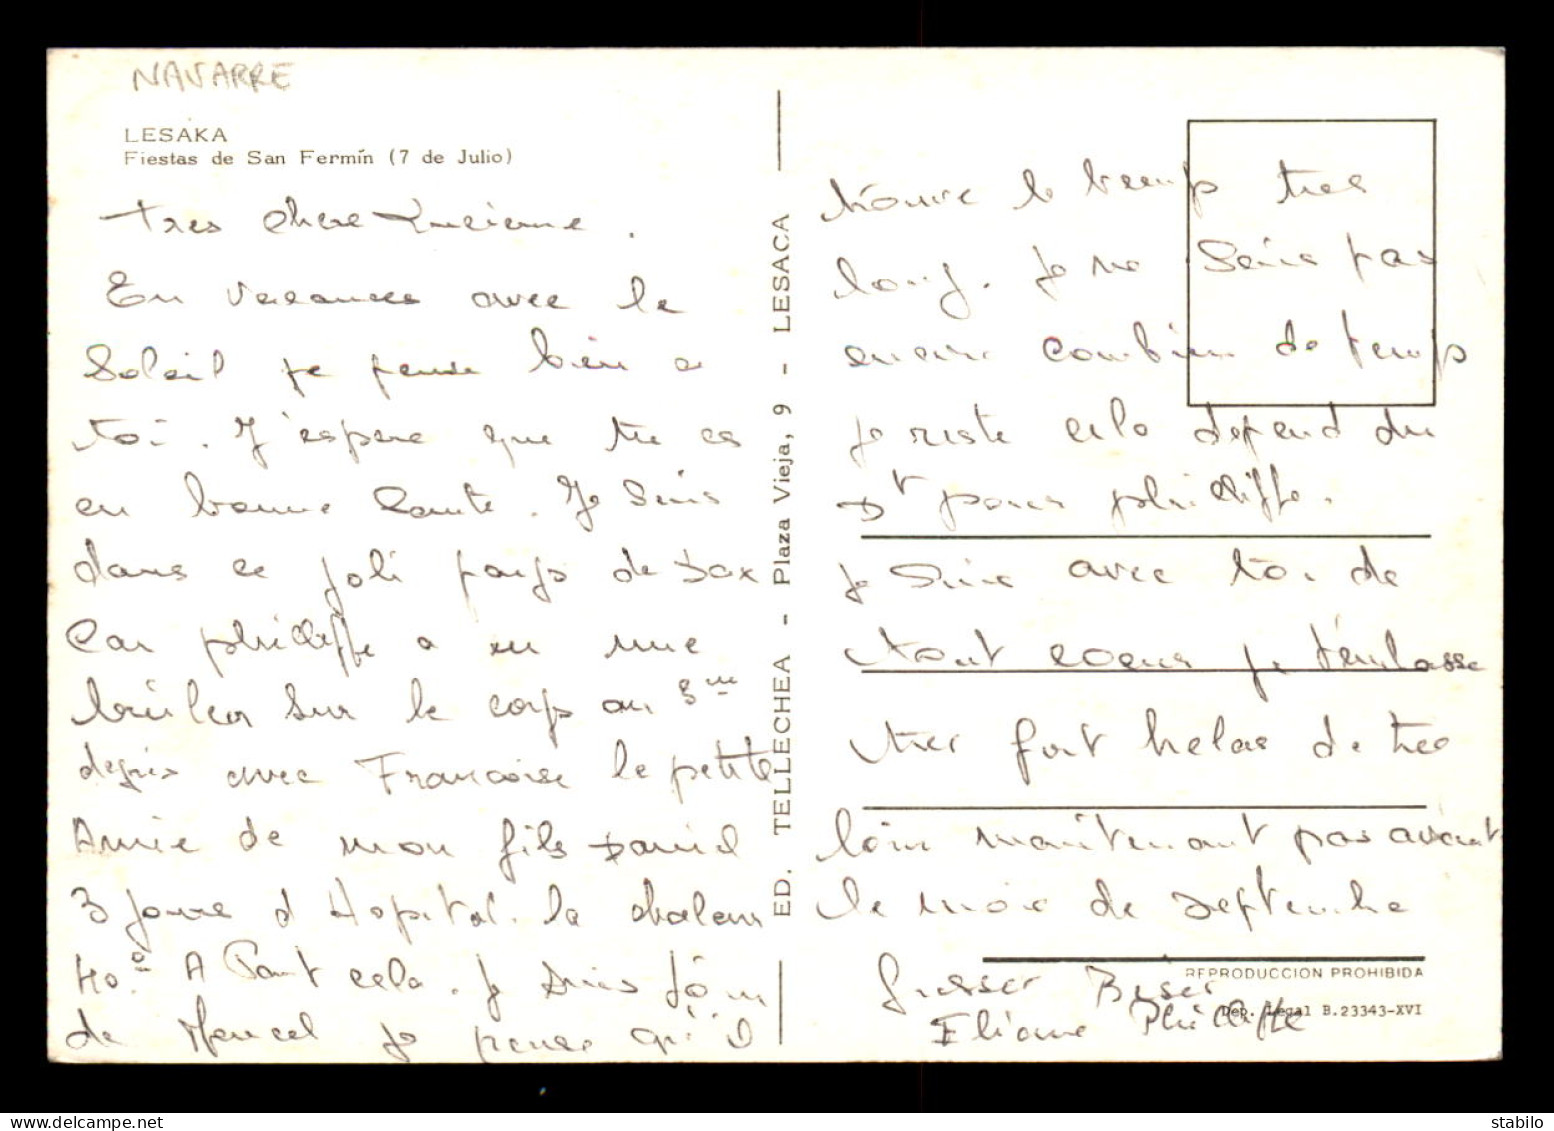 NAVARRE
LESAKA
Fiestas de San Fermín (7 de Julio)
Tres chere Lucienne.
En vacances avec le
Soleil je pense bien a
toi. J'espere que tu es
en bonne Sante. Je Suis
dans ce joli pays de Dax
Car phillippe a eu une
brulea sur le corps au 3me
degres avec Francoise la petite
Amie de mon fils Daniel
3 jours d Hopital. la chaleur
40.° A Part cela. Je suis loin
de Marcel je pense qu'il
ED. TELLECHEA - Plaza Vieja, 9 - LESACA
trouve le temps tres
long. Je ne Sais pas
encore combien de temps
je reste cela depend du
Dr pour phillippe.
je Suis avec toi de
tout coeur je t'embrasse
tres fort helas de tres
loin maintenant pas avant
le mois de septembre
Grosser Biser
Eliane Phillippe
REPRODUCCION PROHIBIDA
Dep. Legal B.23343-XVI
www.delcampe.net
stabilo